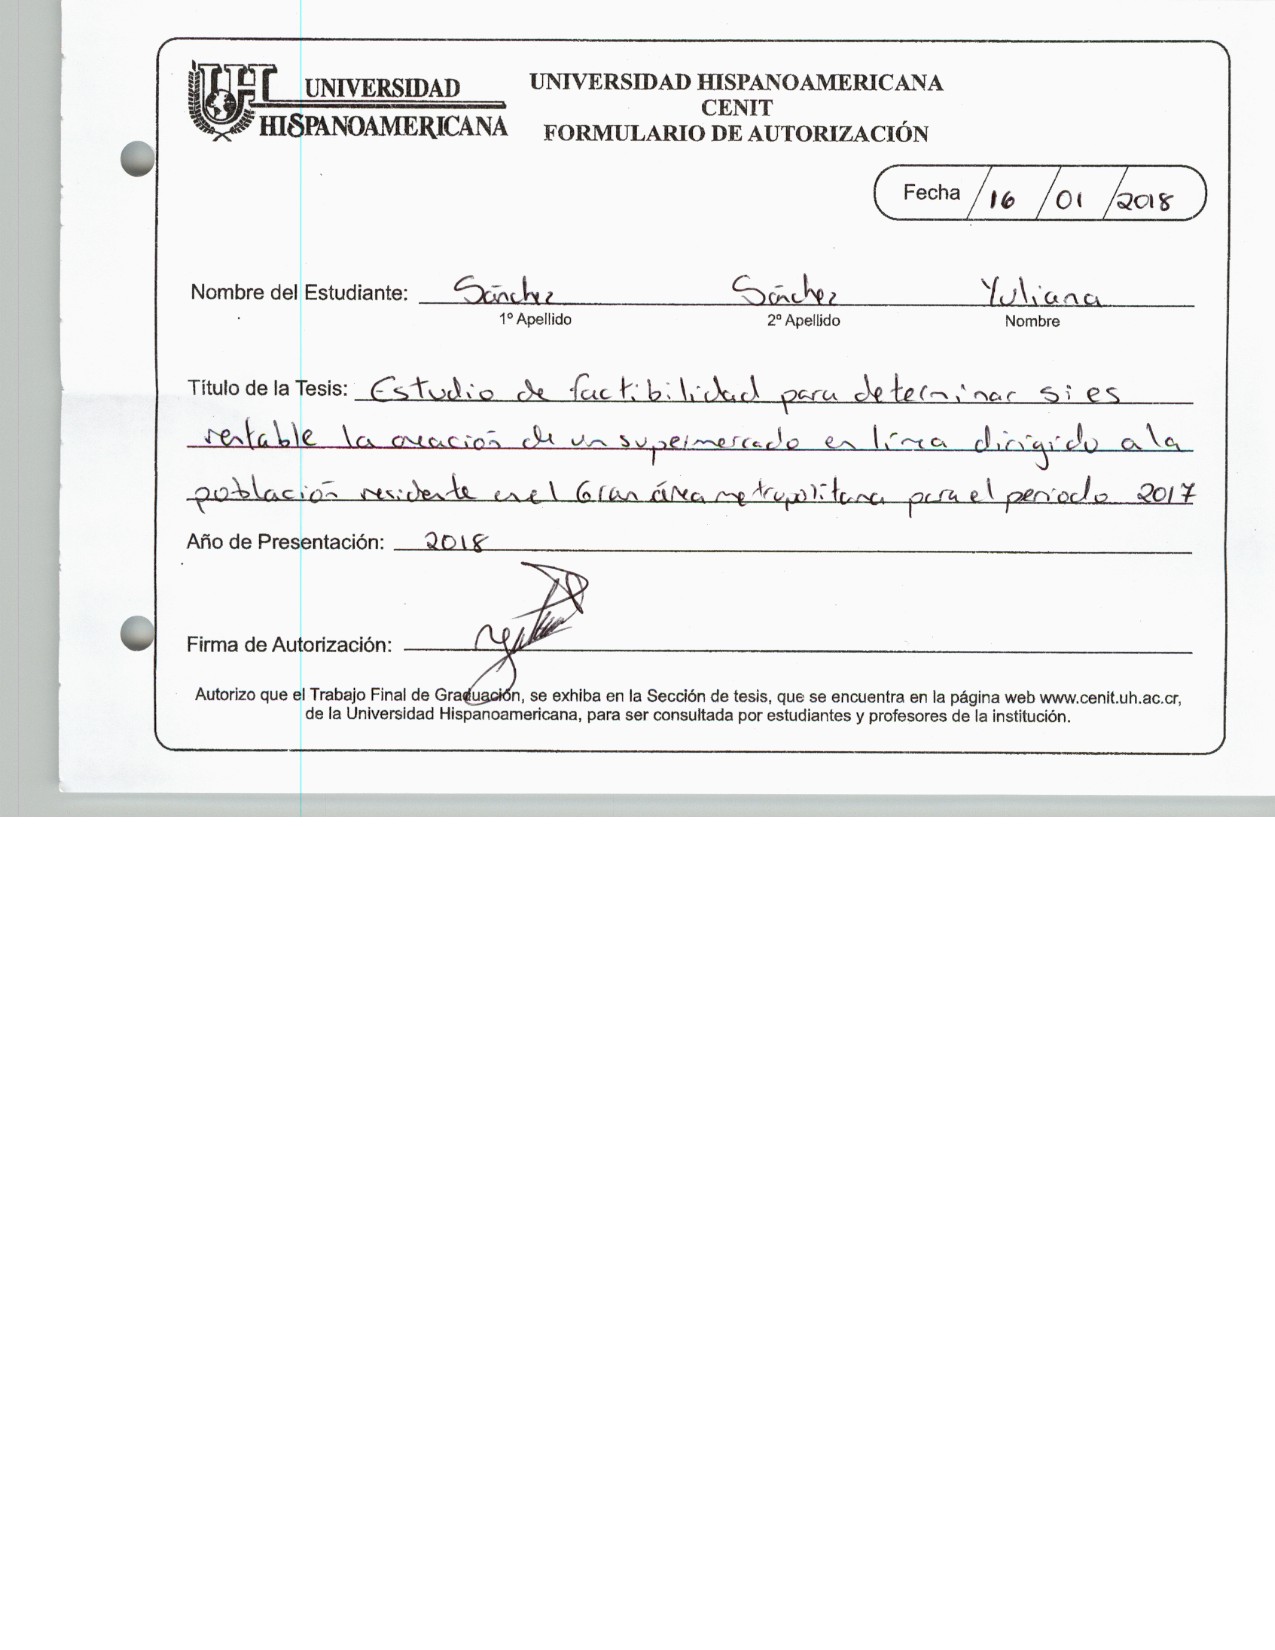 UNIVERSIDAD
HISPANOAMERICANA
UNIVERSIDAD HISPANOAMERICANA
CENIT
FORMULARIO DE AUTORIZACIÓN
Fecha 16 / 01 / 2018
Nombre del Estudiante: Sánchez Sánchez Yuliana
1º Apellido 2º Apellido Nombre
Título de la Tesis: Estudio de factibilidad para determinar si es
rentable la creación de un supermercado en línea dirigido a la
población residente en el Gran área metropolitana para el periodo 2017
Año de Presentación: 2018
Firma de Autorización:
Autorizo que el Trabajo Final de Graduación, se exhiba en la Sección de tesis, que se encuentra en la página web www.cenit.uh.ac.cr,
de la Universidad Hispanoamericana, para ser consultada por estudiantes y profesores de la institución.